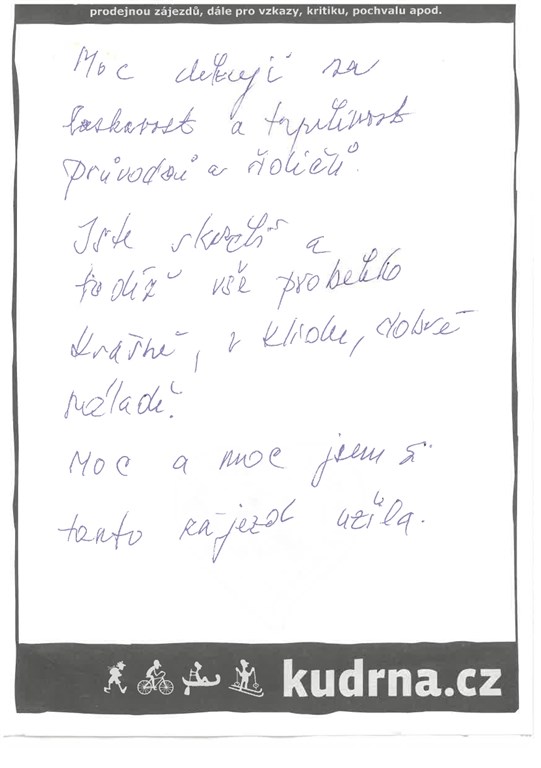 prodejnou zájezdů, dále pro vzkazy, kritiku, pochvalu apod.
Moc děkuji za
laskavost a trpělivost
průvodců a řidičů.
Jste skvělí a
tudíž vše proběhlo
krásně, v klidu, dobré
náladě.
Moc a moc jsem si
tento zájezd užila.
kudrna.cz